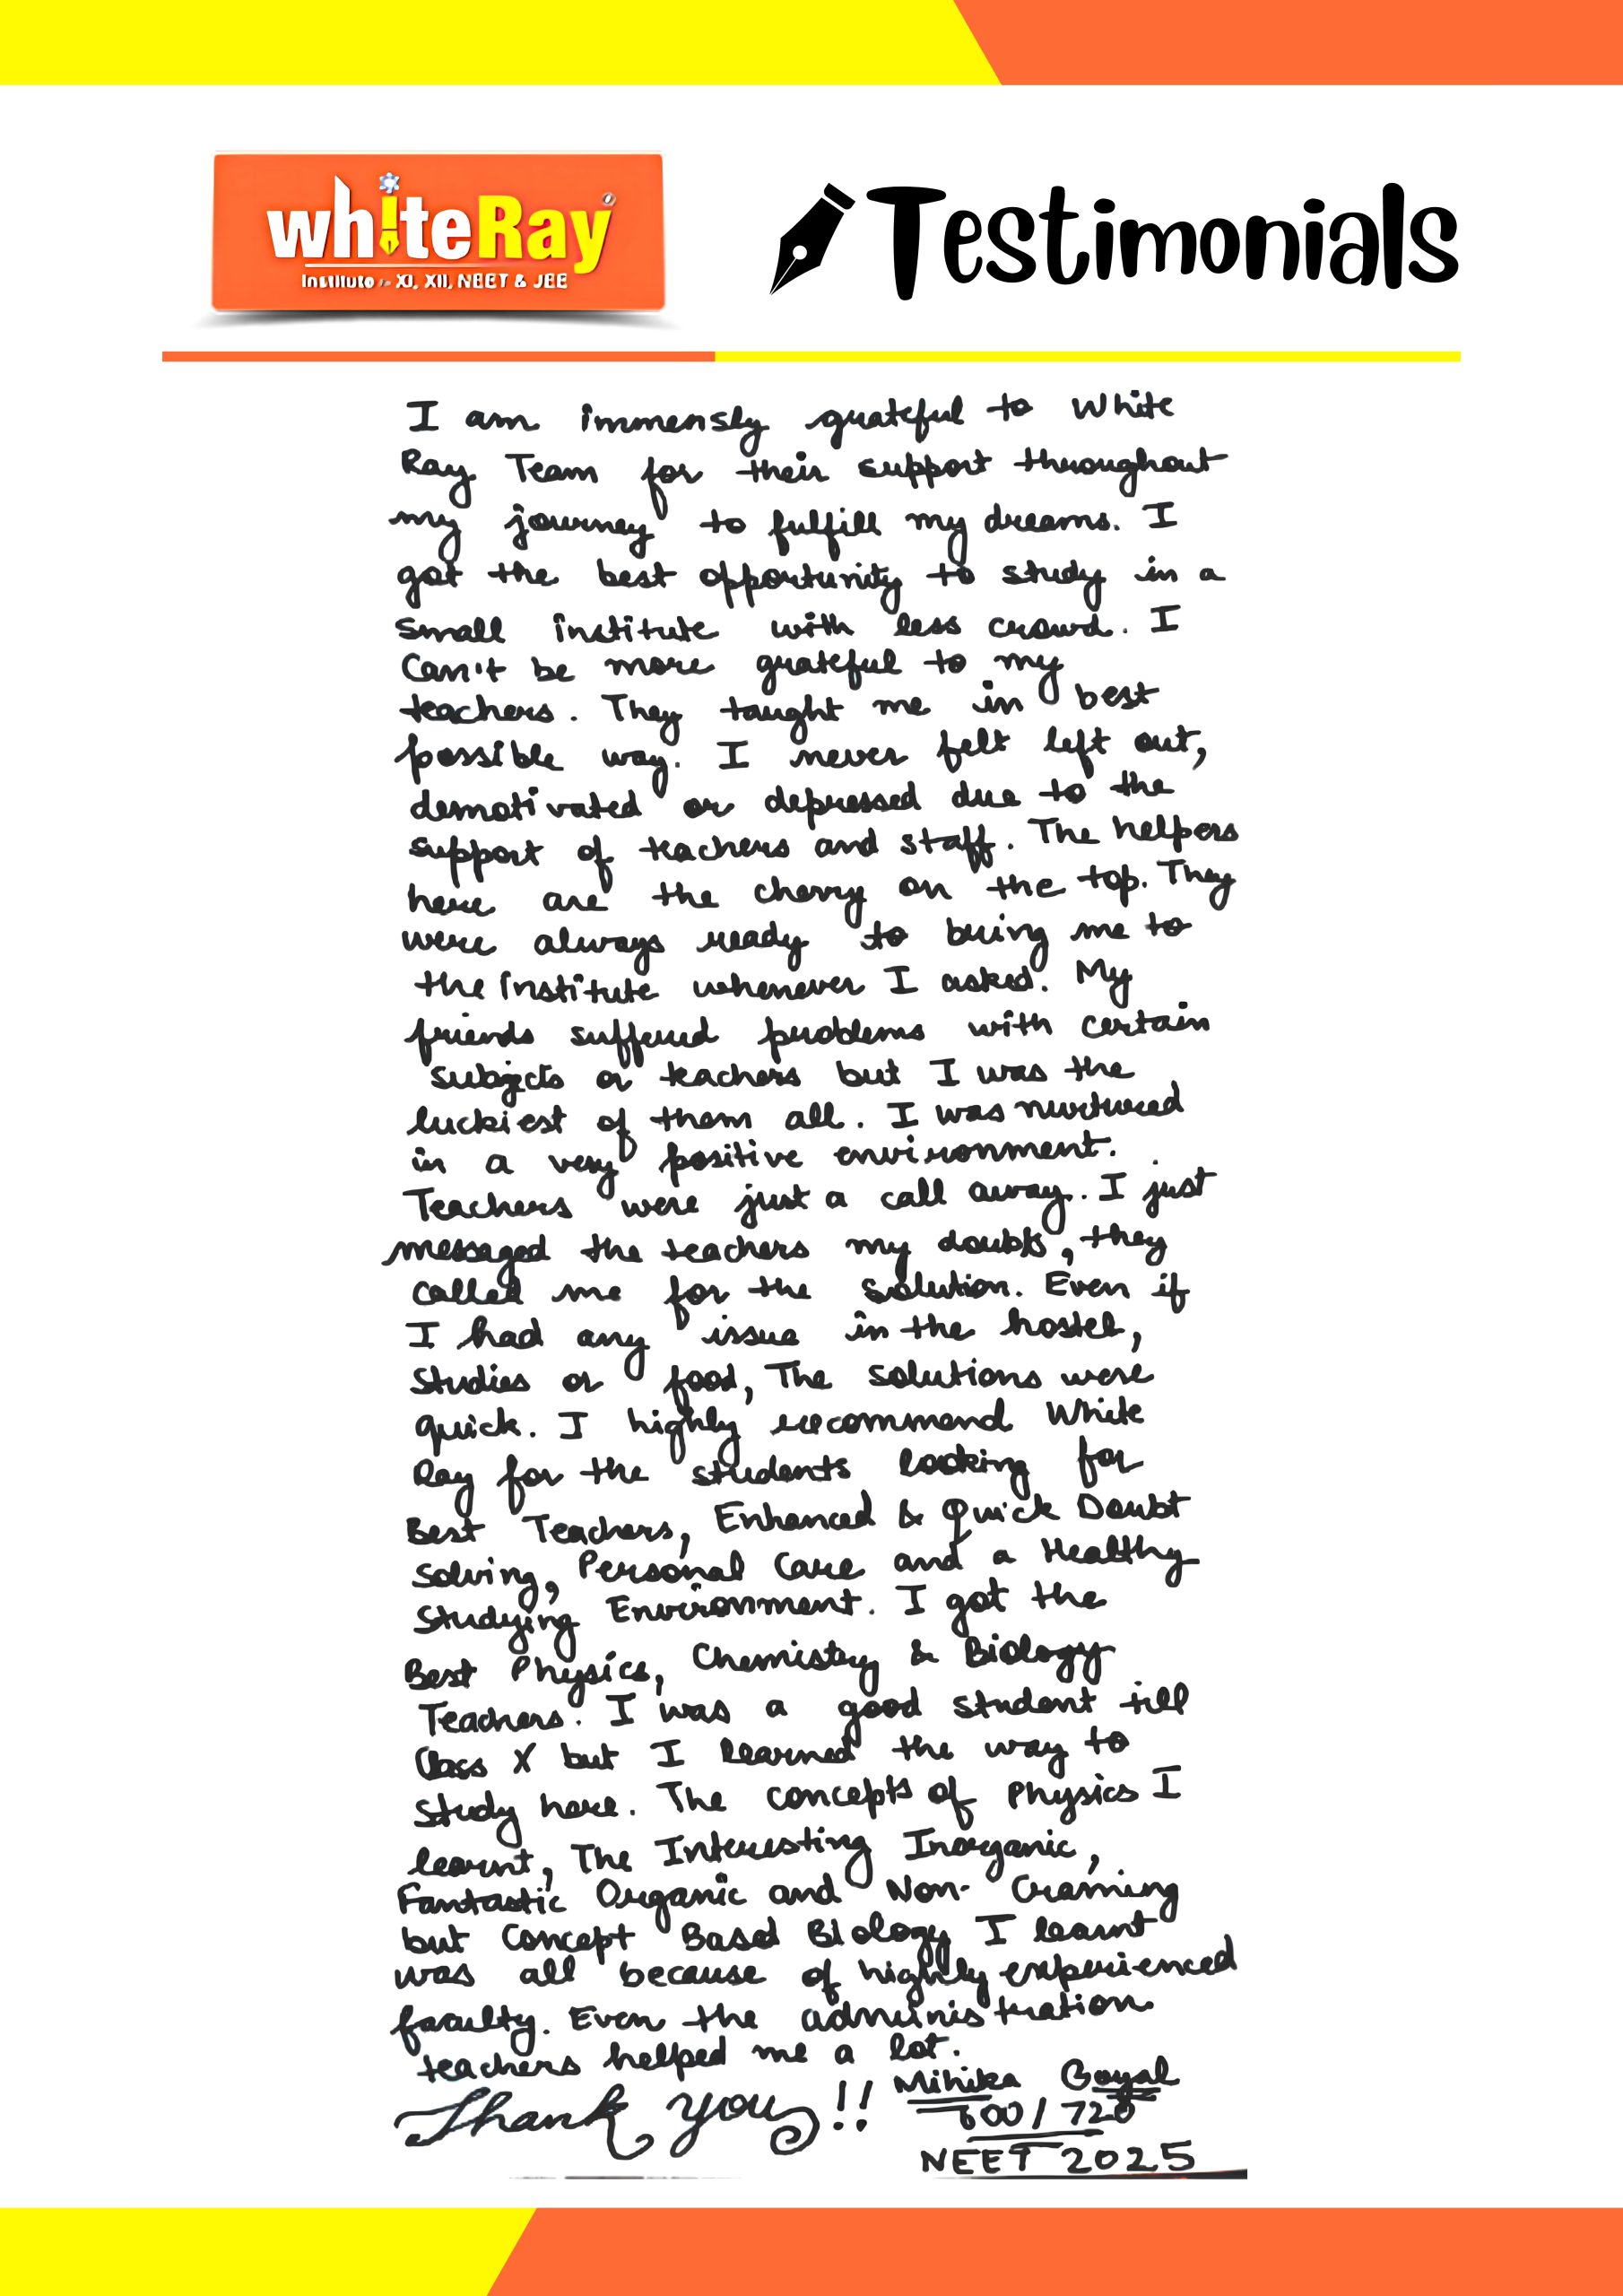 whiteRay
Institute - XI, XII, NEET & JEE
Testimonials
I am immensly grateful to White
Ray Team for their support throughout
my journey to fulfill my dreams. I
got the best opportunity to study in a
small institute with less crowd. I
Can't be more grateful to my
teachers. They taught me in best
possible way. I never felt left out,
demotivated or depressed due to the
support of teachers and staff. The helpers
here are the cherry on the top. They
were always ready to bring me to
the institute whenever I asked. My
friends suffered problems with certain
subjects or teachers but I was the
luckiest of them all. I was nurtured
in a very positive environment.
Teachers were just a call away. I just
messaged the teachers my doubts, they
called me for the solution. Even if
I had any issue in the hostel,
studies or food, The solutions were
quick. I highly recommend White
Ray for the students looking for
Best Teachers, Enhanced & Quick Doubt
Solving, Personal Care and a Healthy
Studying Environment. I got the
Best Physics, Chemistry & Biology
Teachers. I was a good student till
Class X but I learned the way to
study here. The concepts of Physics I
learnt, The Interesting Inorganic,
Fantastic Organic and Non- Craming
but Concept Based Biology I learnt
was all because of highly experienced
faculty. Even the administration
teachers helped me a lot.
Thank you!!
Mihika Goyal
600/720
NEET 2025